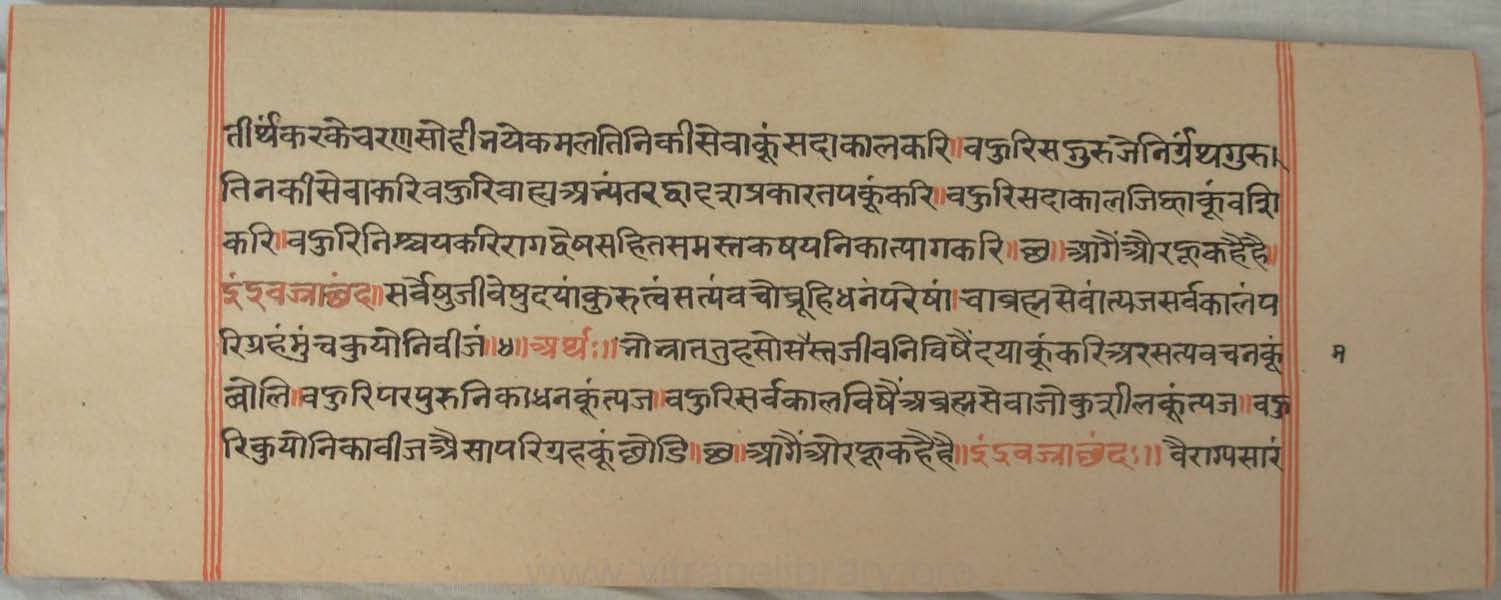 तीर्थंकरकेचरणसोहीभयेकमलतिनिकीसेवाकूंसदाकालकरि॥वहुरिसगुरुजेनिर्ग्रंथगुरु।
तिनकीसेवाकरिवहुरिवाह्यअभ्यंतरद्वादशप्रकारतपकूंकरि॥वहुरिसदाकालजिह्वाकूंवशि
करि॥वहुरिनिश्चयकरिरागद्वेषसहितसमस्तकषयनिकात्यागकरि॥छ॥आगैंऔरहूकहैहै॥
इंद्रवज्राछंद॥सर्वेषुजीवेषुदयांकुरुत्वंसत्यंवचोब्रूहिधनंपरेषां।चाब्रह्मसेवांत्यजसर्वकालंप
रिग्रहंमुंचकुयोनिवीजं॥४॥अर्थः॥भोभ्राततुहसोसैस्तजीवनिविषैंदयाकूंकरिअरसत्यवचनकूं
बोलि॥वहुरिपरपुरुनिकाधनकूंत्यज॥वहुरिसर्वकालविषैंअब्रह्मसेवाजोकुशीलकूंत्यज॥वहु
रिकुयोनिकावीजअैसापरिग्रहकूंछोडि॥छ॥आगैंओरहूकहैहै॥इंद्रवज्राछंदः॥वैराग्यसारं
म
www.vitragelibrary.org